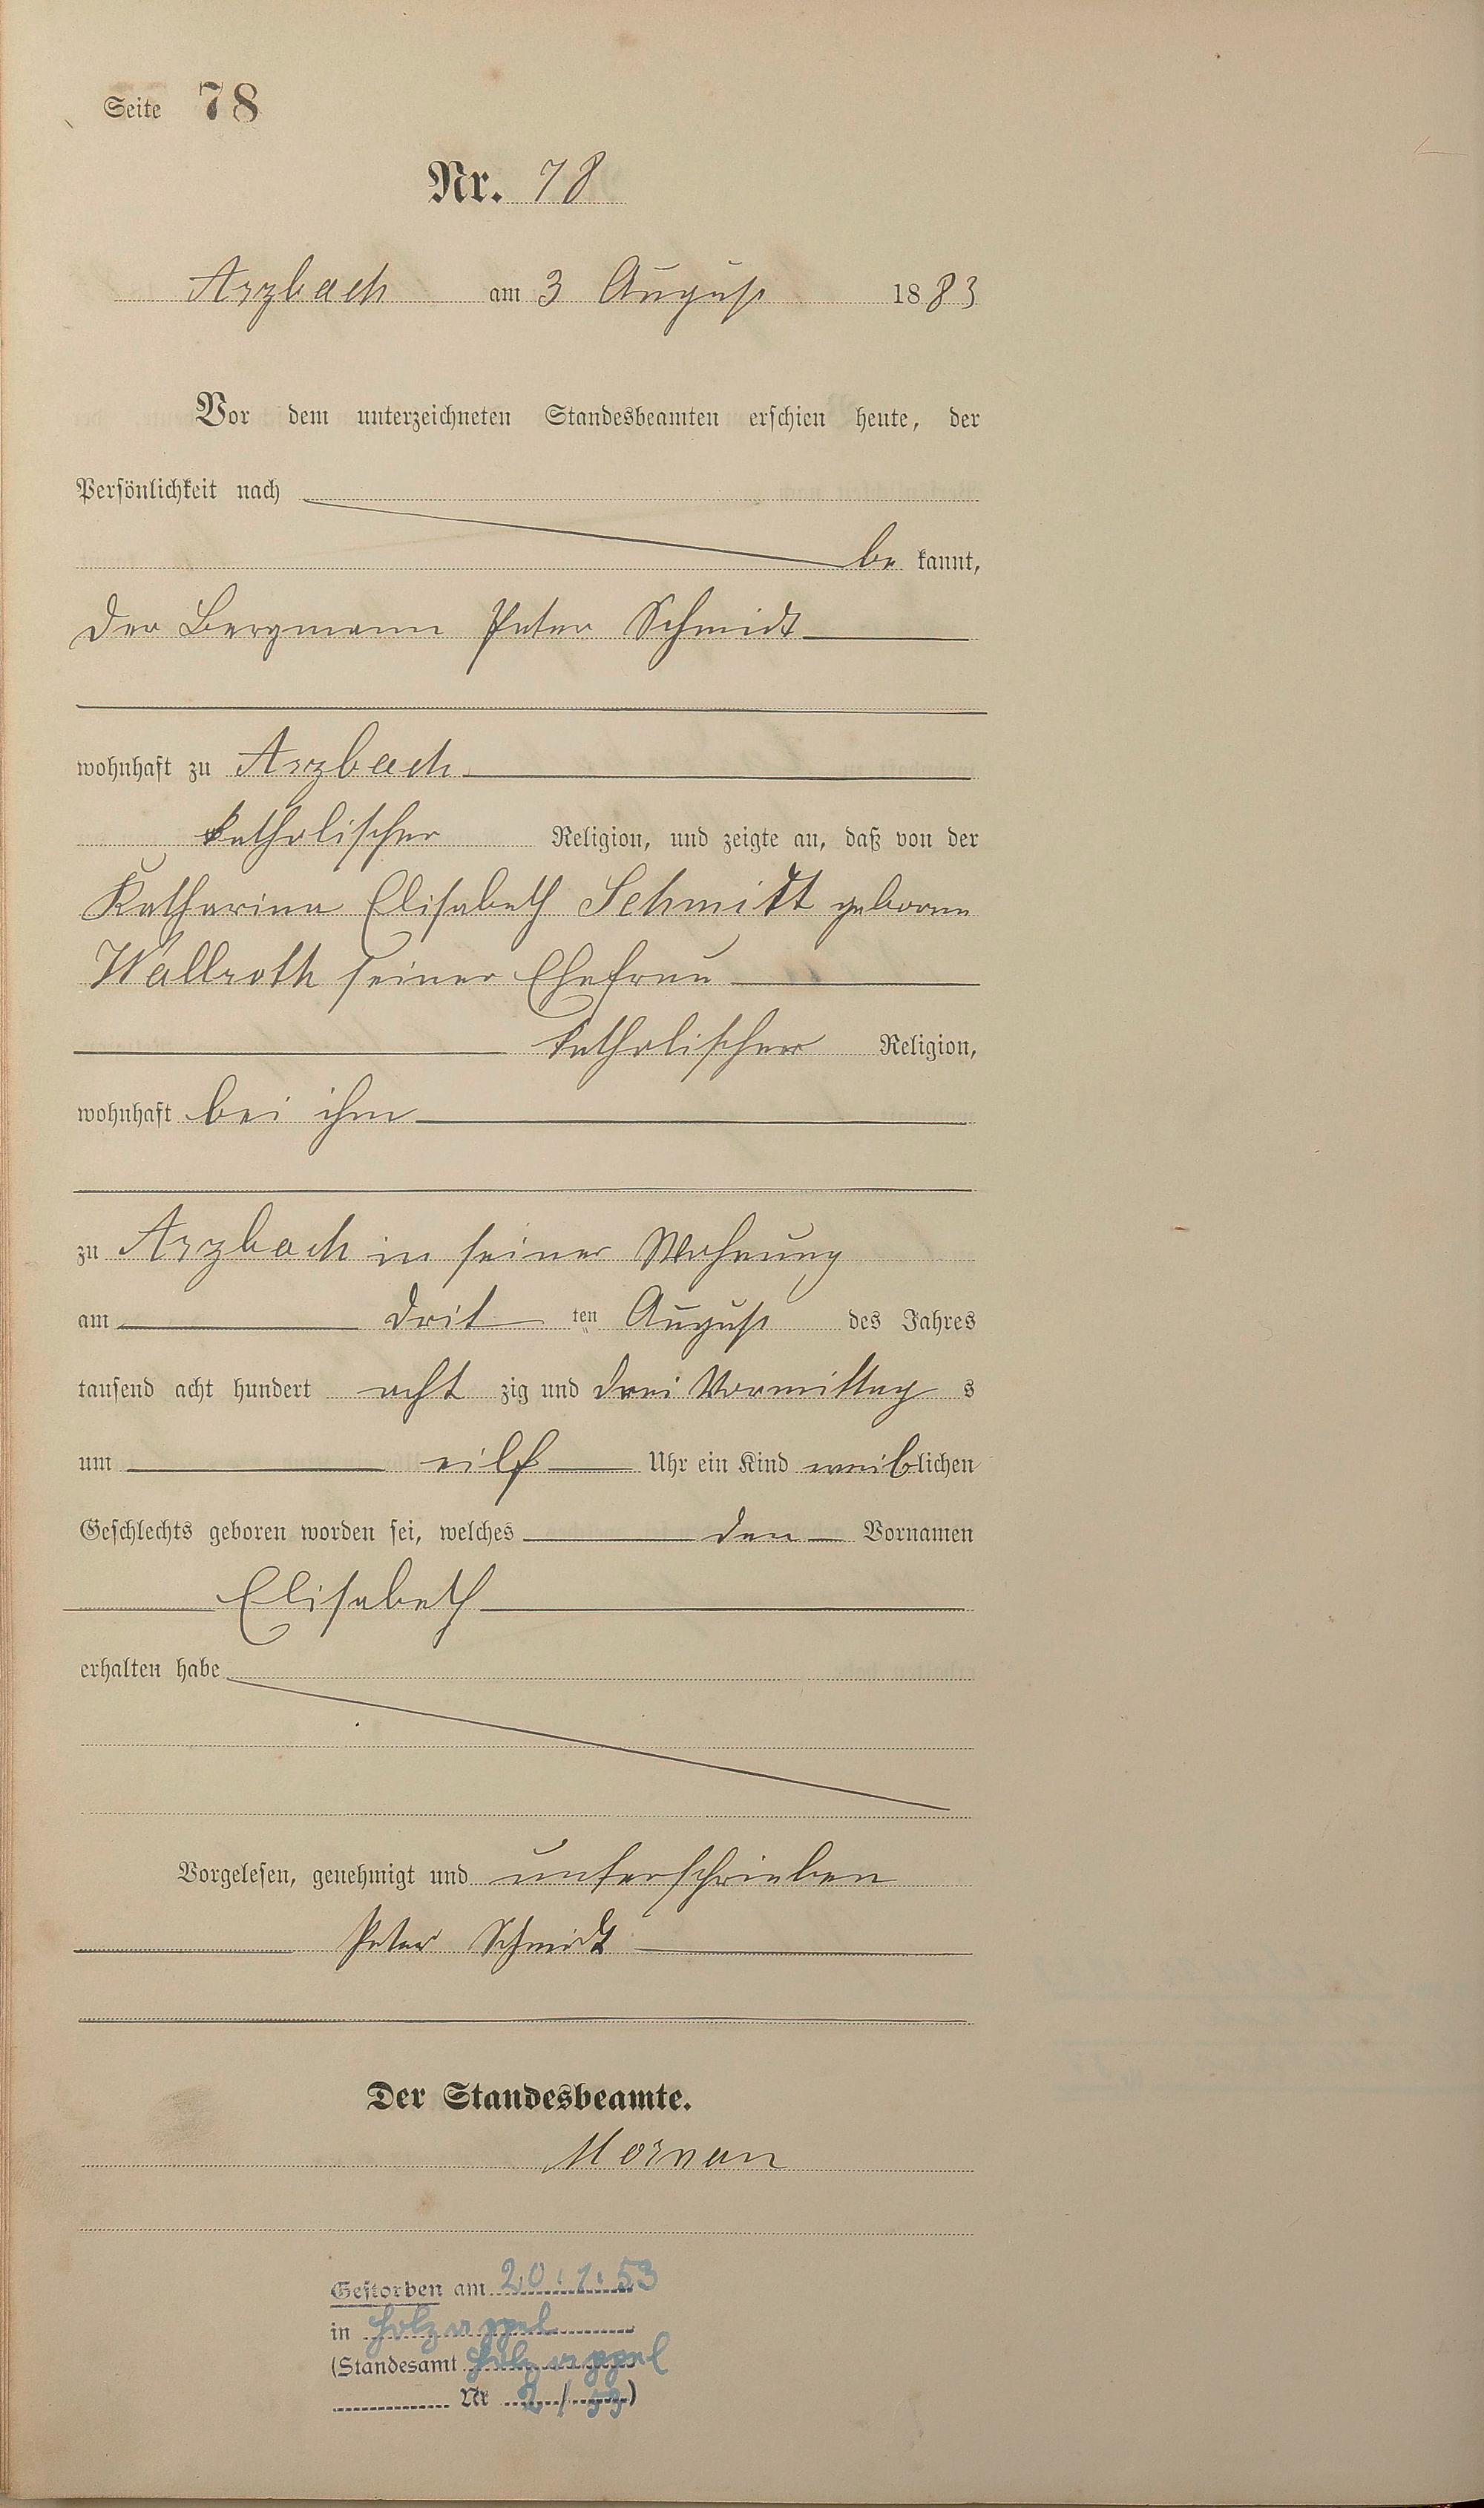 Seite 78
Nr. 78
Arzbach am 3 August 1883
Vor dem unterzeichneten Standesbeamten erschien heute, der
Persönlichkeit nach
be kannt,
der Bergmann Peter Schmidt
wohnhaft zu Arzbach
katholischer Religion, und zeigte an, daß von der
Katharina Elisabeth Schmitt geborene
Wallroth seiner Ehefrau
katholischer Religion,
wohnhaft bei ihm
zu Arzbach in seiner Wohnung
am drit ten August des Jahres
tausend acht hundert acht zig und drei Vormittag s
um eilf Uhr ein Kind weiblichen
Geschlechts geboren worden sei, welches den Vornamen
Elisabeth
erhalten habe
Vorgelesen, genehmigt und unterschrieben
Peter Schmidt
Der Standesbeamte.
Gestorben am 20.1.53
in Holzappel
(Standesamt Holzappel
Nr 2/53)